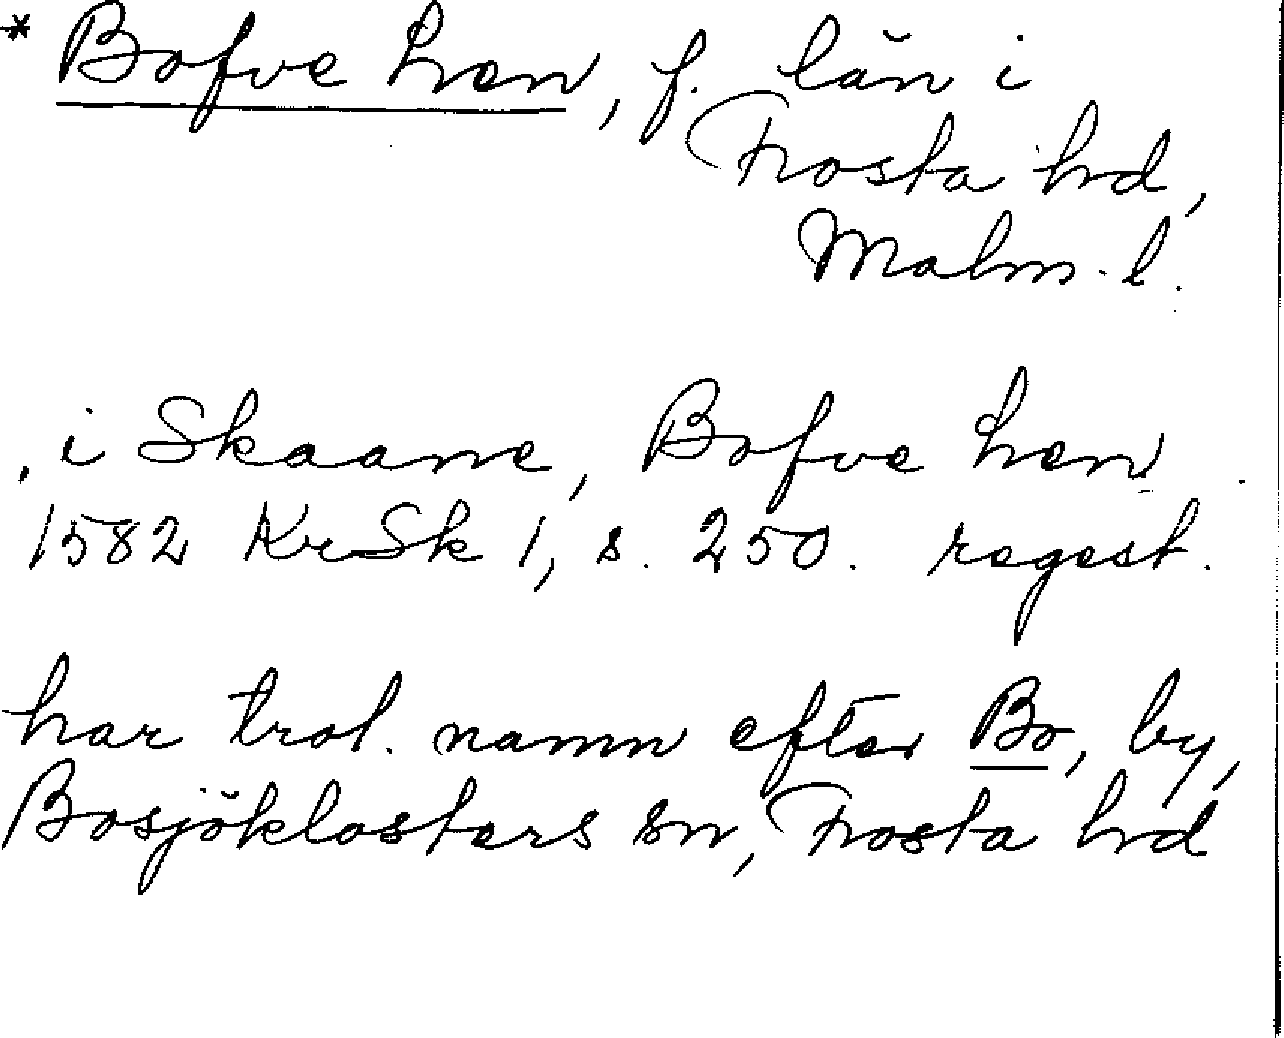 * Bofve Len, f. län i
Frosta hd,
Malm. l.
, i Skaane, Bofve Len
1582 KrSk 1, s. 250. regest.
har trol. namn efter Bo, by,
Bosjöklosters sn, Frosta hd